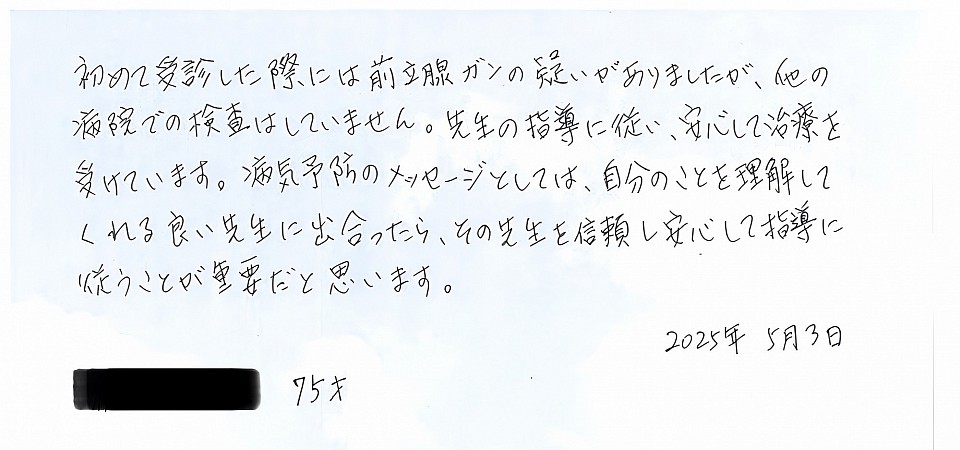 初めて受診した際には前立腺ガンの疑いがありましたが、他の
病院での検査はしていません。先生の指導に従い、安心して治療を
受けています。病気予防のメッセージとしては、自分のことを理解して
くれる良い先生に出合ったら、その先生を信頼し安心して指導に
従うことが重要だと思います。
2025年 5月3日
75才